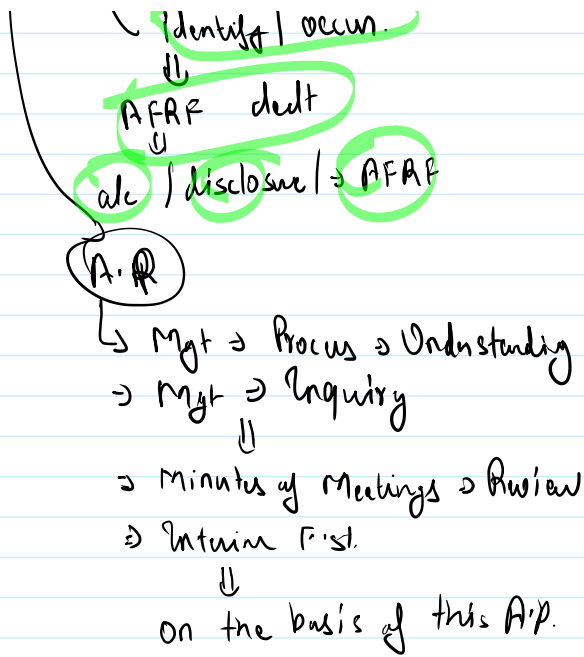 Identify / occur.
⇓
AFRF dedt
⇓
a/c / disclosure / → AFRF
A.P
↳ Mgt → Process → Understanding
→ Mgt → Inquiry
⇓
→ Minutes of Meetings → Review
→ Interim F.st.
⇓
on the basis of this A.P.